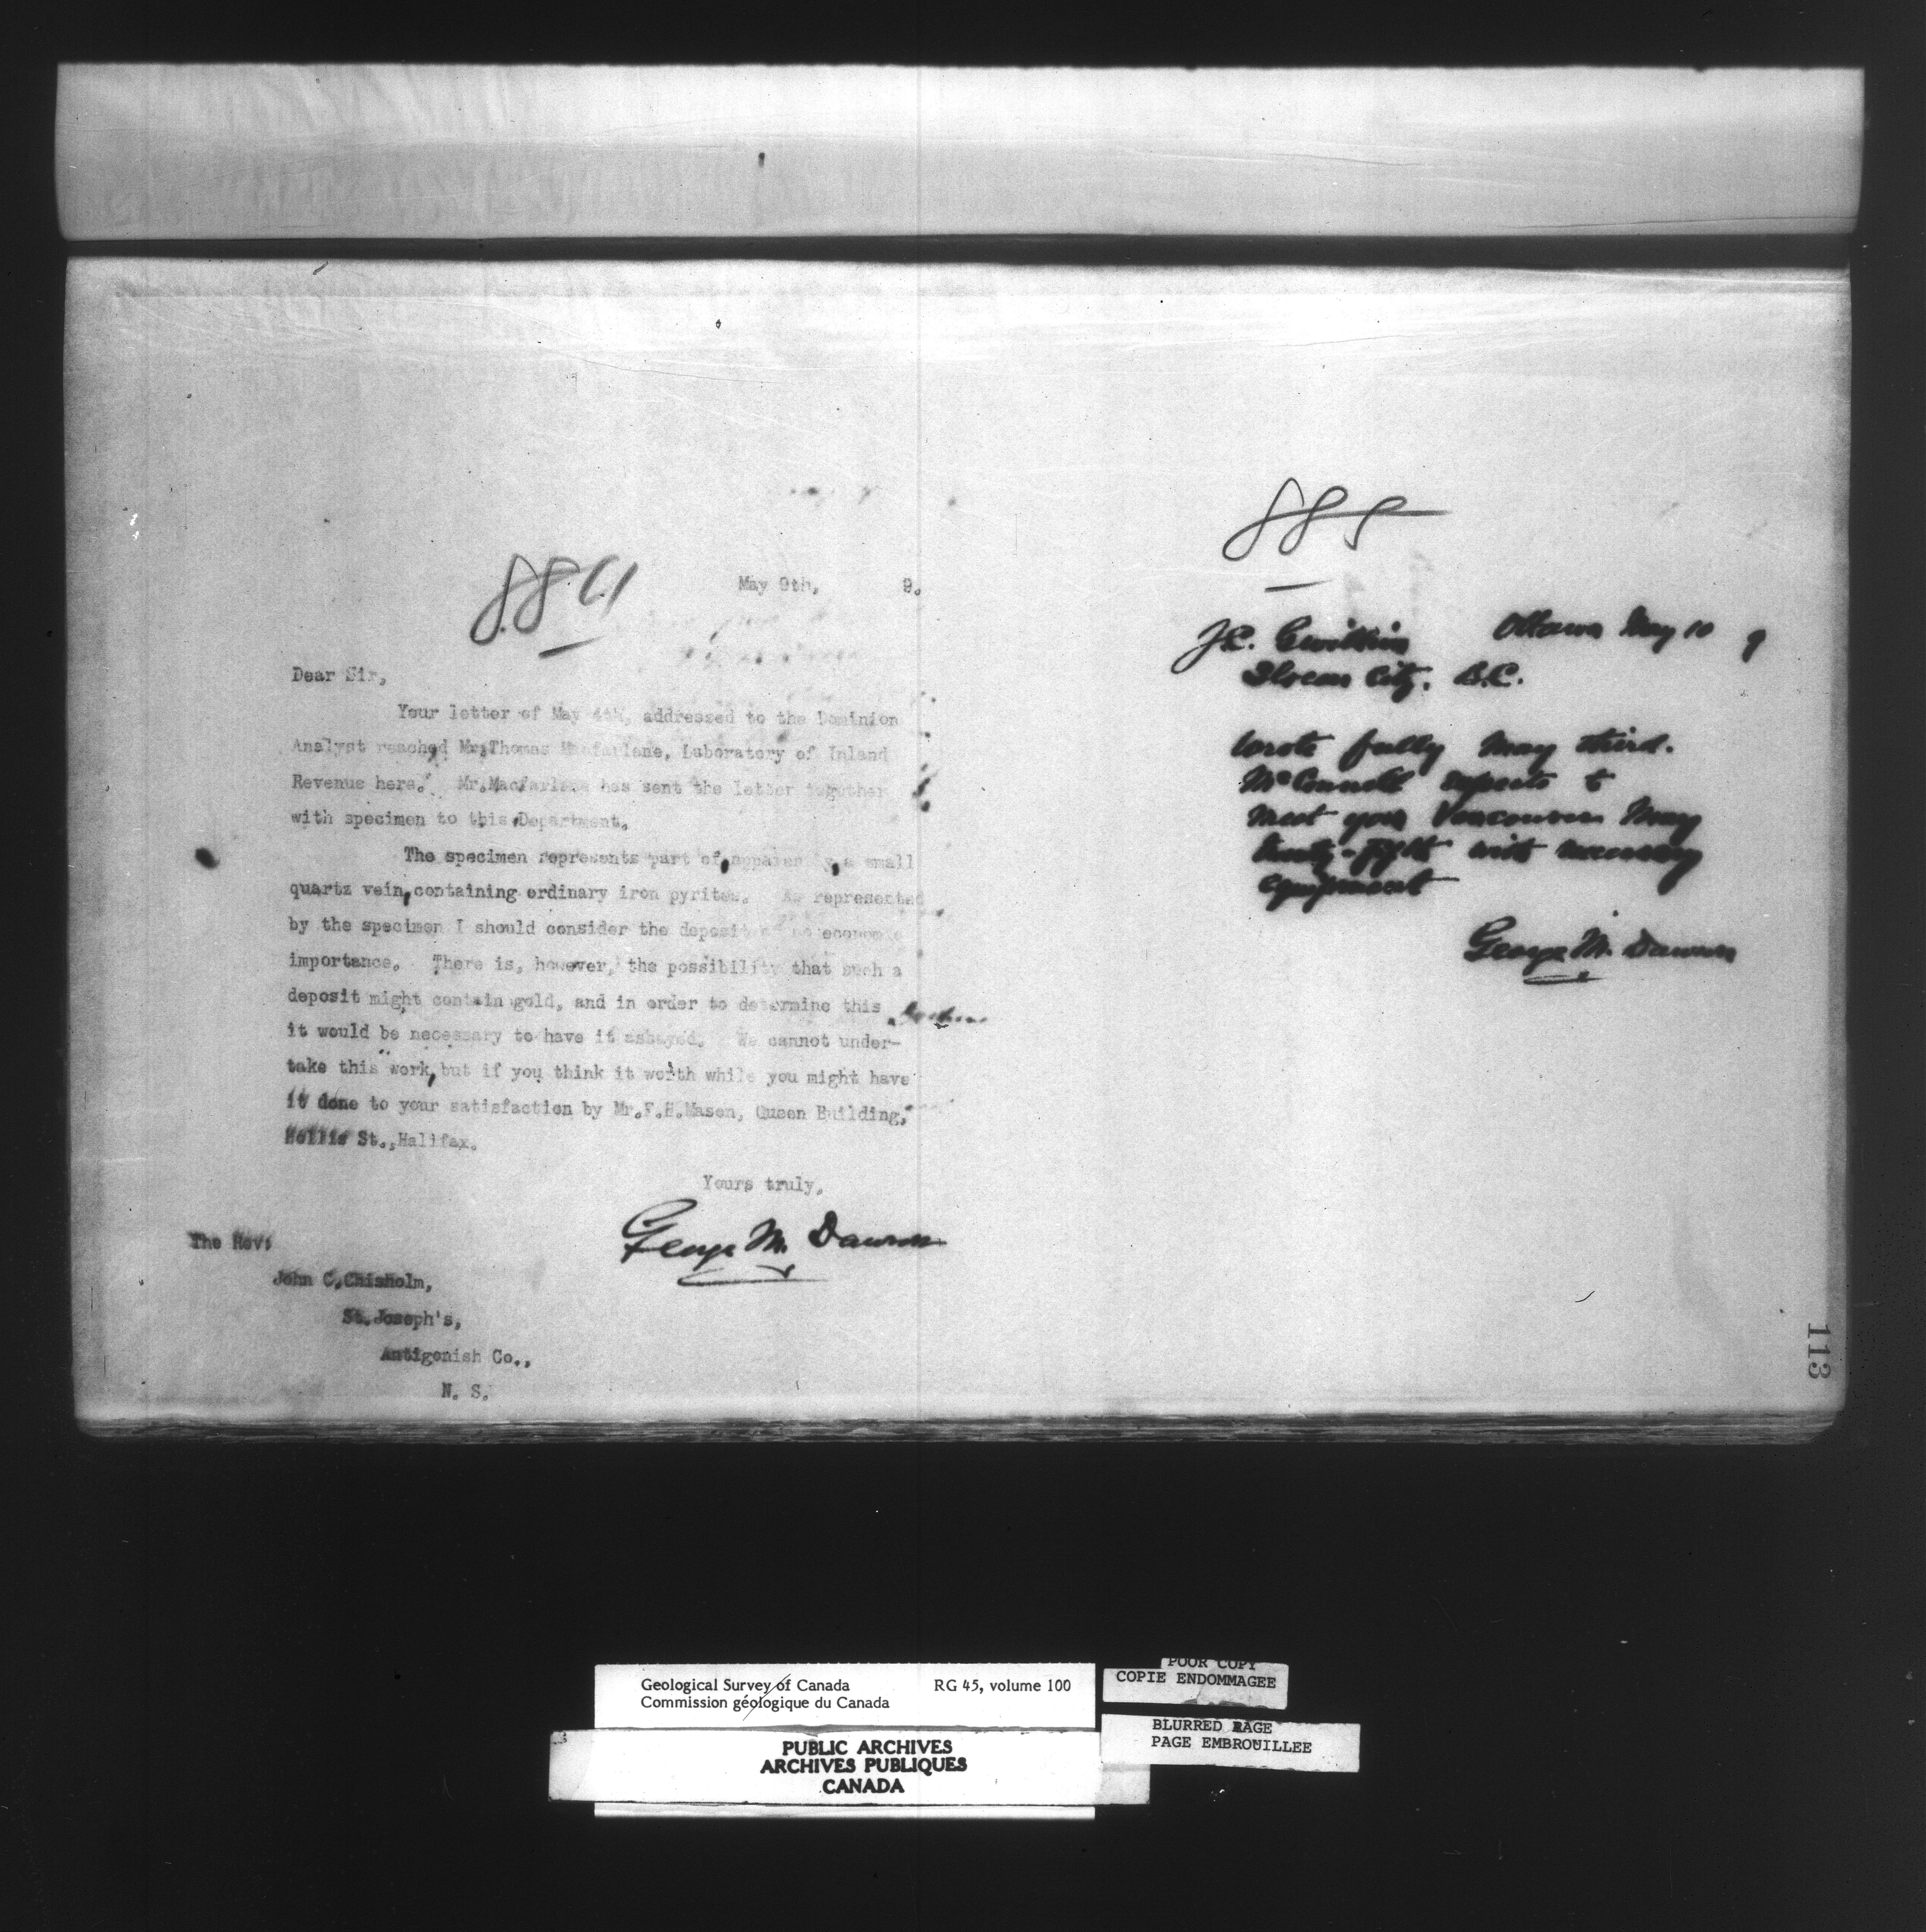 884
May 9th, 9.
Dear Sir,
Your letter of May 4th, addressed to the Dominion
Analyst reached Mr.Thomas Macfarlane, Laboratory of Inland
Revenue here. Mr.Macfarlane has sent the letter together
with specimen to this Department.
The specimen represents part of, apparently, a small
quartz vein, containing ordinary iron pyrites. As represented
by the specimen I should consider the deposit of no economic
importance. There is, however, the possibility that such a
deposit might contain gold, and in order to determine this
it would be necessary to have it assayed. We cannot under-
take this work, but if you think it worth while you might have
it done to your satisfaction by Mr.F.H.Mason, Queen Building,
Hollis St., Halifax.
Yours truly,
George M. Dawson
The Rev:
John C. Chisholm,
St.Joseph's,
Antigonish Co.,
N. S.
885
J.C. Ottawa May 10 9
Slocan City. B.C.
Wrote fully May third.
McConnell expects to
meet you Vancouver May
twenty-fifth with necessary
equipment
George M. Dawson
113
Geological Survey of Canada RG 45, volume 100
Commission géologique du Canada
PUBLIC ARCHIVES
ARCHIVES PUBLIQUES
CANADA
POOR COPY
COPIE ENDOMMAGEE
BLURRED PAGE
PAGE EMBROUILLEE